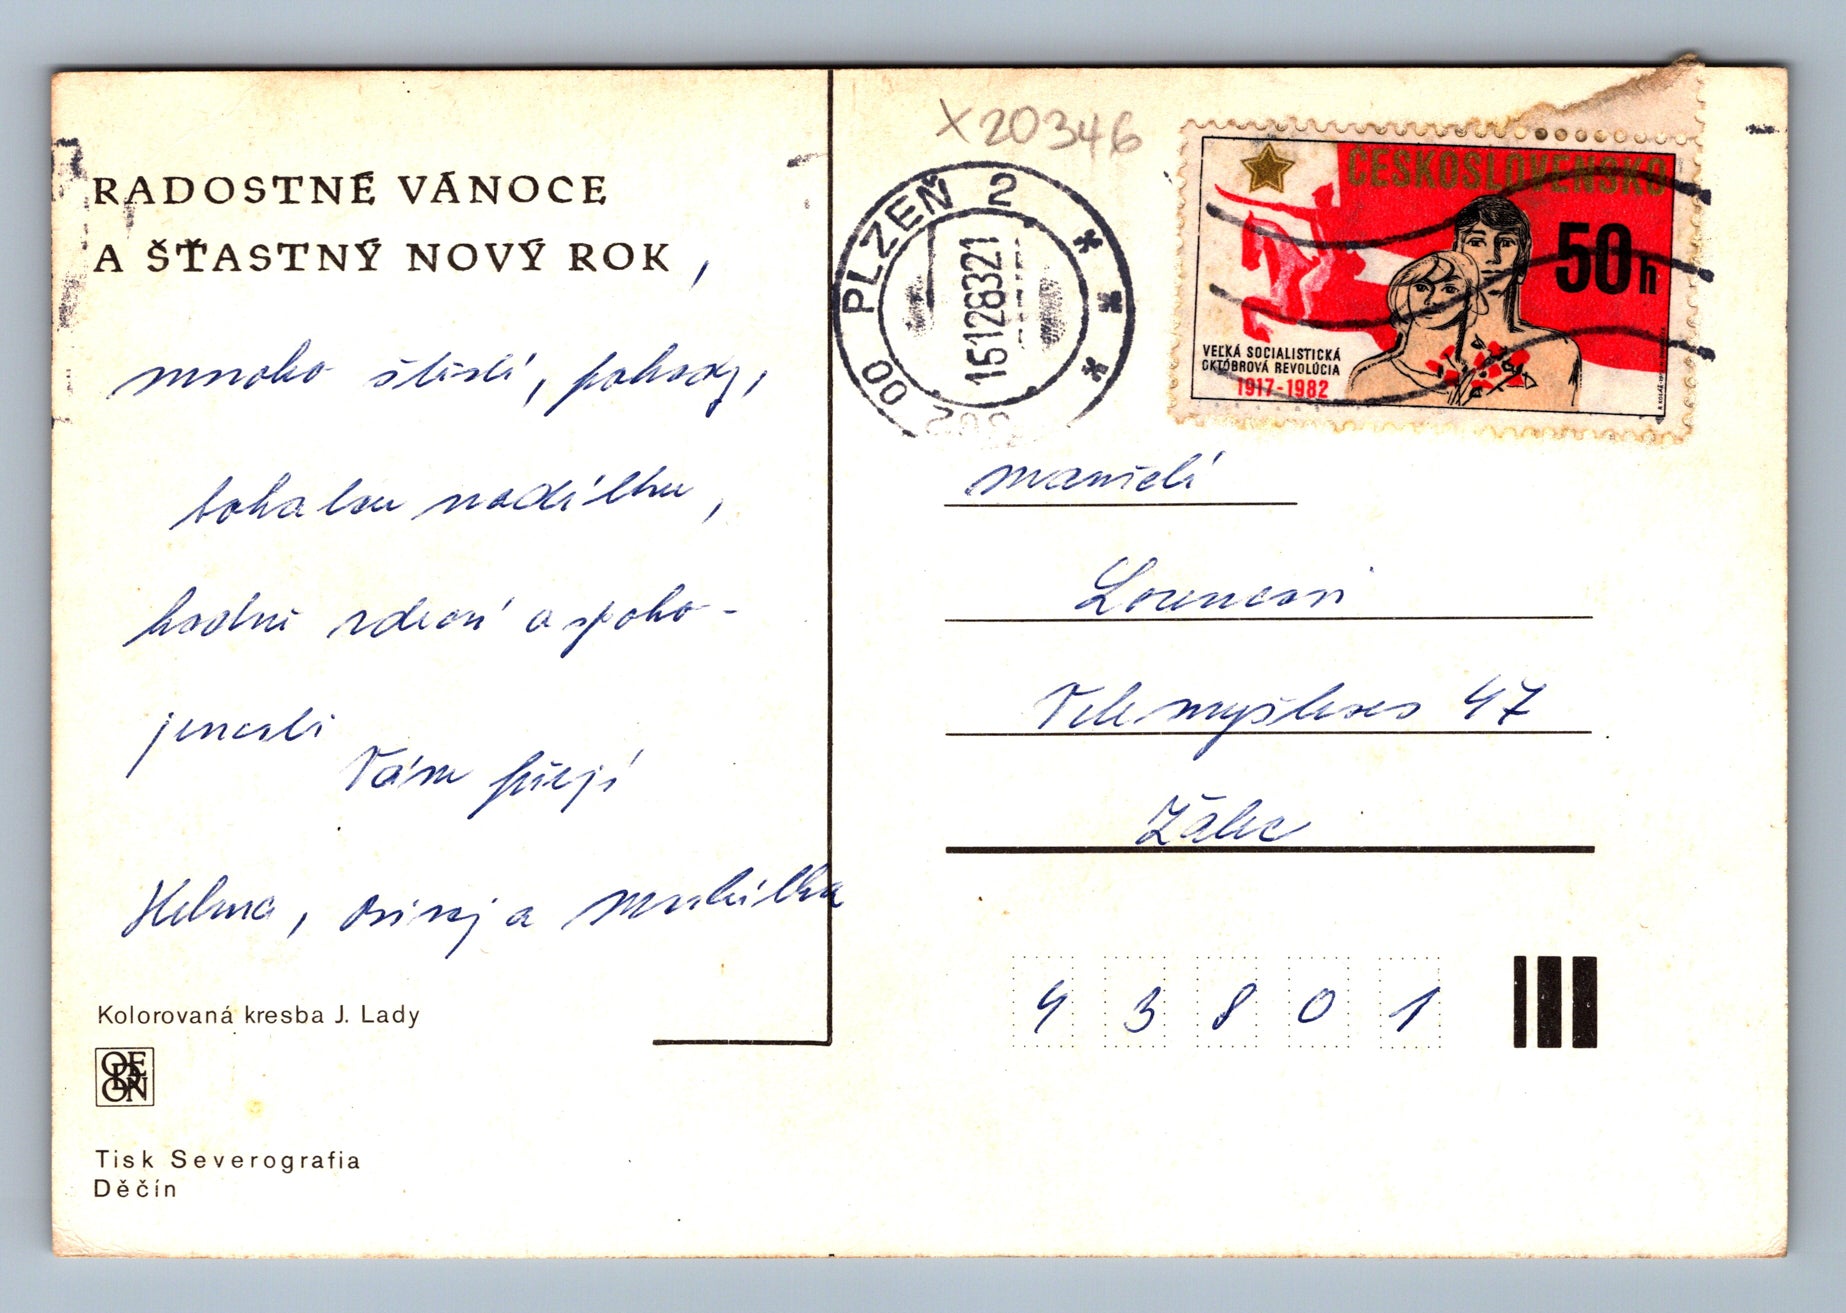 RADOSTNÉ VÁNOCE
A ŠŤASTNÝ NOVÝ ROK,
mnoho štěstí, pohody,
bohatou nadílku,
hodně zdraví a spoko-
jenosti
Vám přejí
Helena, a
Kolorovaná kresba J. Lady
ODEON
Tisk Severografia
Děčín
X20346
PLZEŇ 2
15128321
00
ČESKOSLOVENSKO
50 h
VEĽKÁ SOCIALISTICKÁ
OKTÓBROVÁ REVOLÚCIA
1917-1982
manželé
Velemyšleves 47
Žatec
43801